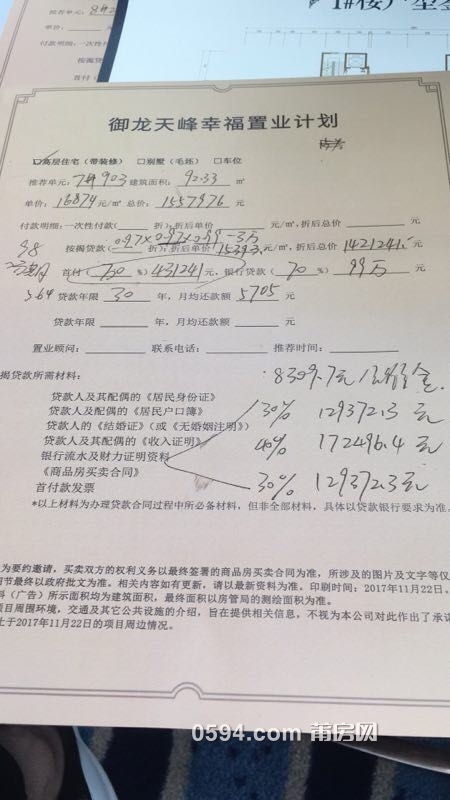 推荐单元: 8#2
付款明细:一次性付
按揭
首付
贷款
1#楼户型鉴
御龙天峰幸福置业计划
☑高层住宅(带装修) □别墅(毛坯) □车位
推荐单元: 7#903 建筑面积: 92.33 ㎡
单价: 16874 元/㎡ 总价: 1557976 元
付款明细:一次性付款( 折);折后单价 元/㎡,折后总价 元
按揭贷款(0.97×0.97×0.99-3万 折);折后单价 15393 元/㎡,折后总价 1421241 元
首付( 30 %)431241元,银行贷款( 70 %) 99万 元
5.64 贷款年限 30 年,月均还款额 5705 元
贷款年限 年,月均还款额 元
置业顾问: 联系电话: 推荐时间:
揭贷款所需材料: 8309.7元
贷款人及其配偶的《居民身份证》
贷款人及配偶的《居民户口簿》 30% 129372.3 元
贷款人的《结婚证》(或《无婚姻注明》)
贷款人及其配偶的《收入证明》 40% 172496.4 元
银行流水及财力证明资料
《商品房买卖合同》 30% 129372.3元
首付款发票
*以上材料为办理贷款合同过程中所必备材料,但非全部材料,具体以贷款银行要求为准。
为要约邀请,买卖双方的权利义务以最终签署的商品房买卖合同为准,所涉及的图片及文字等仅
细节最终以政府批文为准。相关内容如有更新,请以最新资料为准。印刷时间:2017年11月22日,
料(广告)所示面积均为建筑面积,最终面积以房管局的测绘面积为准。
项目周围环境,交通及其它公共设施的介绍,旨在提供相关信息,不视为本公司对此作出了承诺
止于2017年11月22日的项目周边情况。
0594.com 莆房网